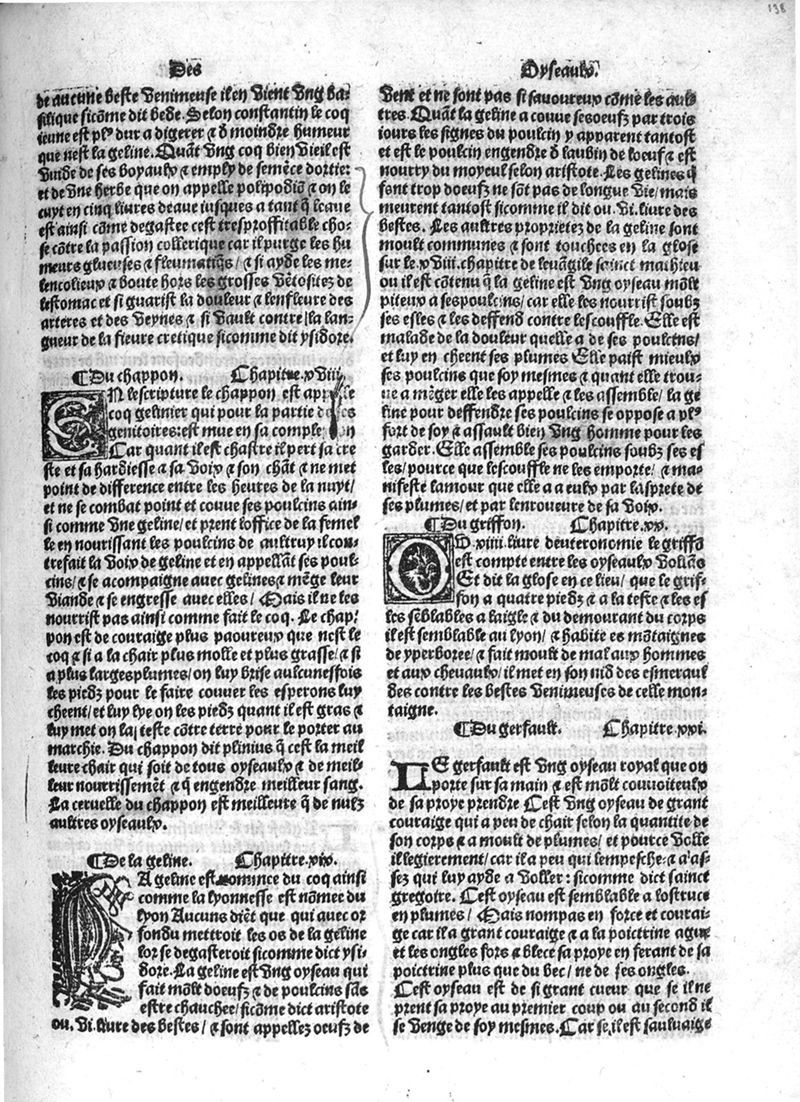 138
Des
Oyseaulx.
de aucune beste venimeuse il en vient vng ba-
silique sicõme dit bede. Selon constantin le coq
ieune est plꝰ dur a digerer ⁊ d̃ moindre humeur
que nest la geline. Quãt vng coq bien vieil est
vuide de ses boyaulx ⁊ emply de semẽce dortie:
et de vne herbe que on appelle polipodiũ ⁊ on le
cuyt en cinq livres deaue iusques a tant q̃ leaue
est ainsi cõme degastee cest tresproffitable cho-
se cõtre la passion collerique car il purge les hu
meurs glueuses ⁊ fleumatiq̃s/ ⁊ si ayde les me-
lencolieux ⁊ boute hors les grosses vẽtositez de
lestomac et si guarist la douleur ⁊ lenfleure des
arteres et des veynes ⁊ si vault contre la lan-
gueur de la fieure cretique sicomme dit ysidore.
¶Du chappon. Chapitre.xviii.
EN lescripture le chappon est
coq gelinier qui pour la partie
genitoires:est mue en sa
Car quant il est chastre il pert sa cre
ste et sa hardiesse ⁊ sa voix ⁊ son chãt ⁊ ne met
point de difference entre les heures de la nuyt/
et ne se combat point et couve ses poulcins ain-
si comme vne geline/ et prent loffice de la femel
le en nourissant les poulcins de aultruy il con-
trefait la voix de geline et en appellãt ses poul-
cins/ ⁊ se acompaigne avec gelines ⁊ mẽge leur
viande ⁊ se engresse avec elles/ Mais il ne les
nourrist pas ainsi comme fait le coq. Le chap-
pon est de couraige plus paoureux que nest le
coq ⁊ si a la chair plus molle et plus grasse/ ⁊ si
a plus larges plumes/ on luy brise aulcunesfois
les piedz pour le faire couver les esperons luy
cheent/ et luy lye on les piedz quant il est gras ⁊
luy met on la teste cõtre terre pour le porter au
marchie. Du chappon dit plinius q̃ cest la meil
leure chair qui soit de tous oyseaulx ⁊ de meil-
leur nourrissemẽt ⁊ q̃ engendre meilleur sang.
La cervelle du chappon est meilleure q̃ de nulz
aultres oyseaulx.
¶De la geline. Chapitre.xix.
LA geline est nommee du coq ainsi
comme la lyonnesse est nõmee du
lyon Aucuns diẽt que qui avec or
fondu mettroit les os de la geline
lor se degasteroit sicomme dict ysi-
dore. La geline est vng oyseau qui
fait mõlt doeufz ⁊ de poulcins sãs
estre chaucher/ sicõme dict aristote
ou.vi.livre des bestes/ ⁊ sont appellez oeufz de
vent et ne sont pas si savoureux cõme les aul-
tres. Quãt la geline a couve ses oeufz par trois
iours les signes du poulcin y apparent tantost
et est le poulcin engendre d̃ laubin de loeuf ⁊ est
nourry du moyeul selon aristote. Les gelines q̃
font trop doeufz ne sõt pas de longue vie/ mais
meurent tantost sicomme il dit ou.vi.livre des
bestes. Les aultres proprietez de la geline sont
moult communes ⁊ sont touchees en la glose
sur le.xviii.chapitre de leuãgile sainct mathieu
ou il est cõtenu q̃ la geline est vng oyseau mõlt
piteux a ses poulcins/ car elle les nourrist soubz
ses esles ⁊ les deffend contre lescouffle. Elle est
malade de la douleur quelle a de ses poulcins/
et luy en cheent ses plumes Elle paist mieulx
ses poulcins que soy mesmes ⁊ quant elle trou-
ue a mẽger elle les appelle ⁊ les assemble/ la ge
line pour deffendre ses poulcins se oppose a plꝰ
fort de soy ⁊ assault bien vng homme pour les
garder. Elle assemble ses poulcins soubz ses es
les/ pource que lescouffle ne les emporte/ ⁊ ma-
nifeste lamour que elle a a eulx par lasprete de
ses plumes/ et par lenroueure de sa voix.
¶Du griffon. Chapitre.xx.
OV.xiiii.livre deuteronomie le griffõ
est compte entre les oyseaulx volãs
Et dit la glose en ce lieu/ que le grif-
fon a quatre piedz ⁊ a la teste ⁊ les es
les sẽblables a laigle ⁊ du demourant du corps
il est semblable au lyon/ ⁊ habite es mõtaignes
de yperboree/ ⁊ fait moult de mal aux hommes
et aux chevaulx/ il met en son nid des esmeraul
des contre les bestes venimeuses de celle mon-
taigne.
¶Du gerfault. Chapitre.xxi.
LE gerfault est vng oyseau royal que on
porte sur sa main ⁊ est mõlt couuoiteux
de sa proye prendre Cest vng oyseau de grant
couraige qui a peu de chair selon la quantite de
son corps ⁊ a moult de plumes/ et pource volle
il legierement/ car il a peu qui lempesche ⁊ a as-
sez qui luy ayde a voller: sicomme dict sainct
gregoire. Cest oyseau est semblable a lostruce
en plumes/ Mais nompas en force et courai-
ge car il a grant couraige ⁊ a la poictrine ague
et les ongles fors ⁊ blece sa proye en ferant de sa
poictrine plus que du bec/ ne de ses ongles.
Cest oyseau est de si grant cueur que se il ne
prent sa proye au premier coup ou au second il
se venge de soy mesmes. Car se il est sauluaige